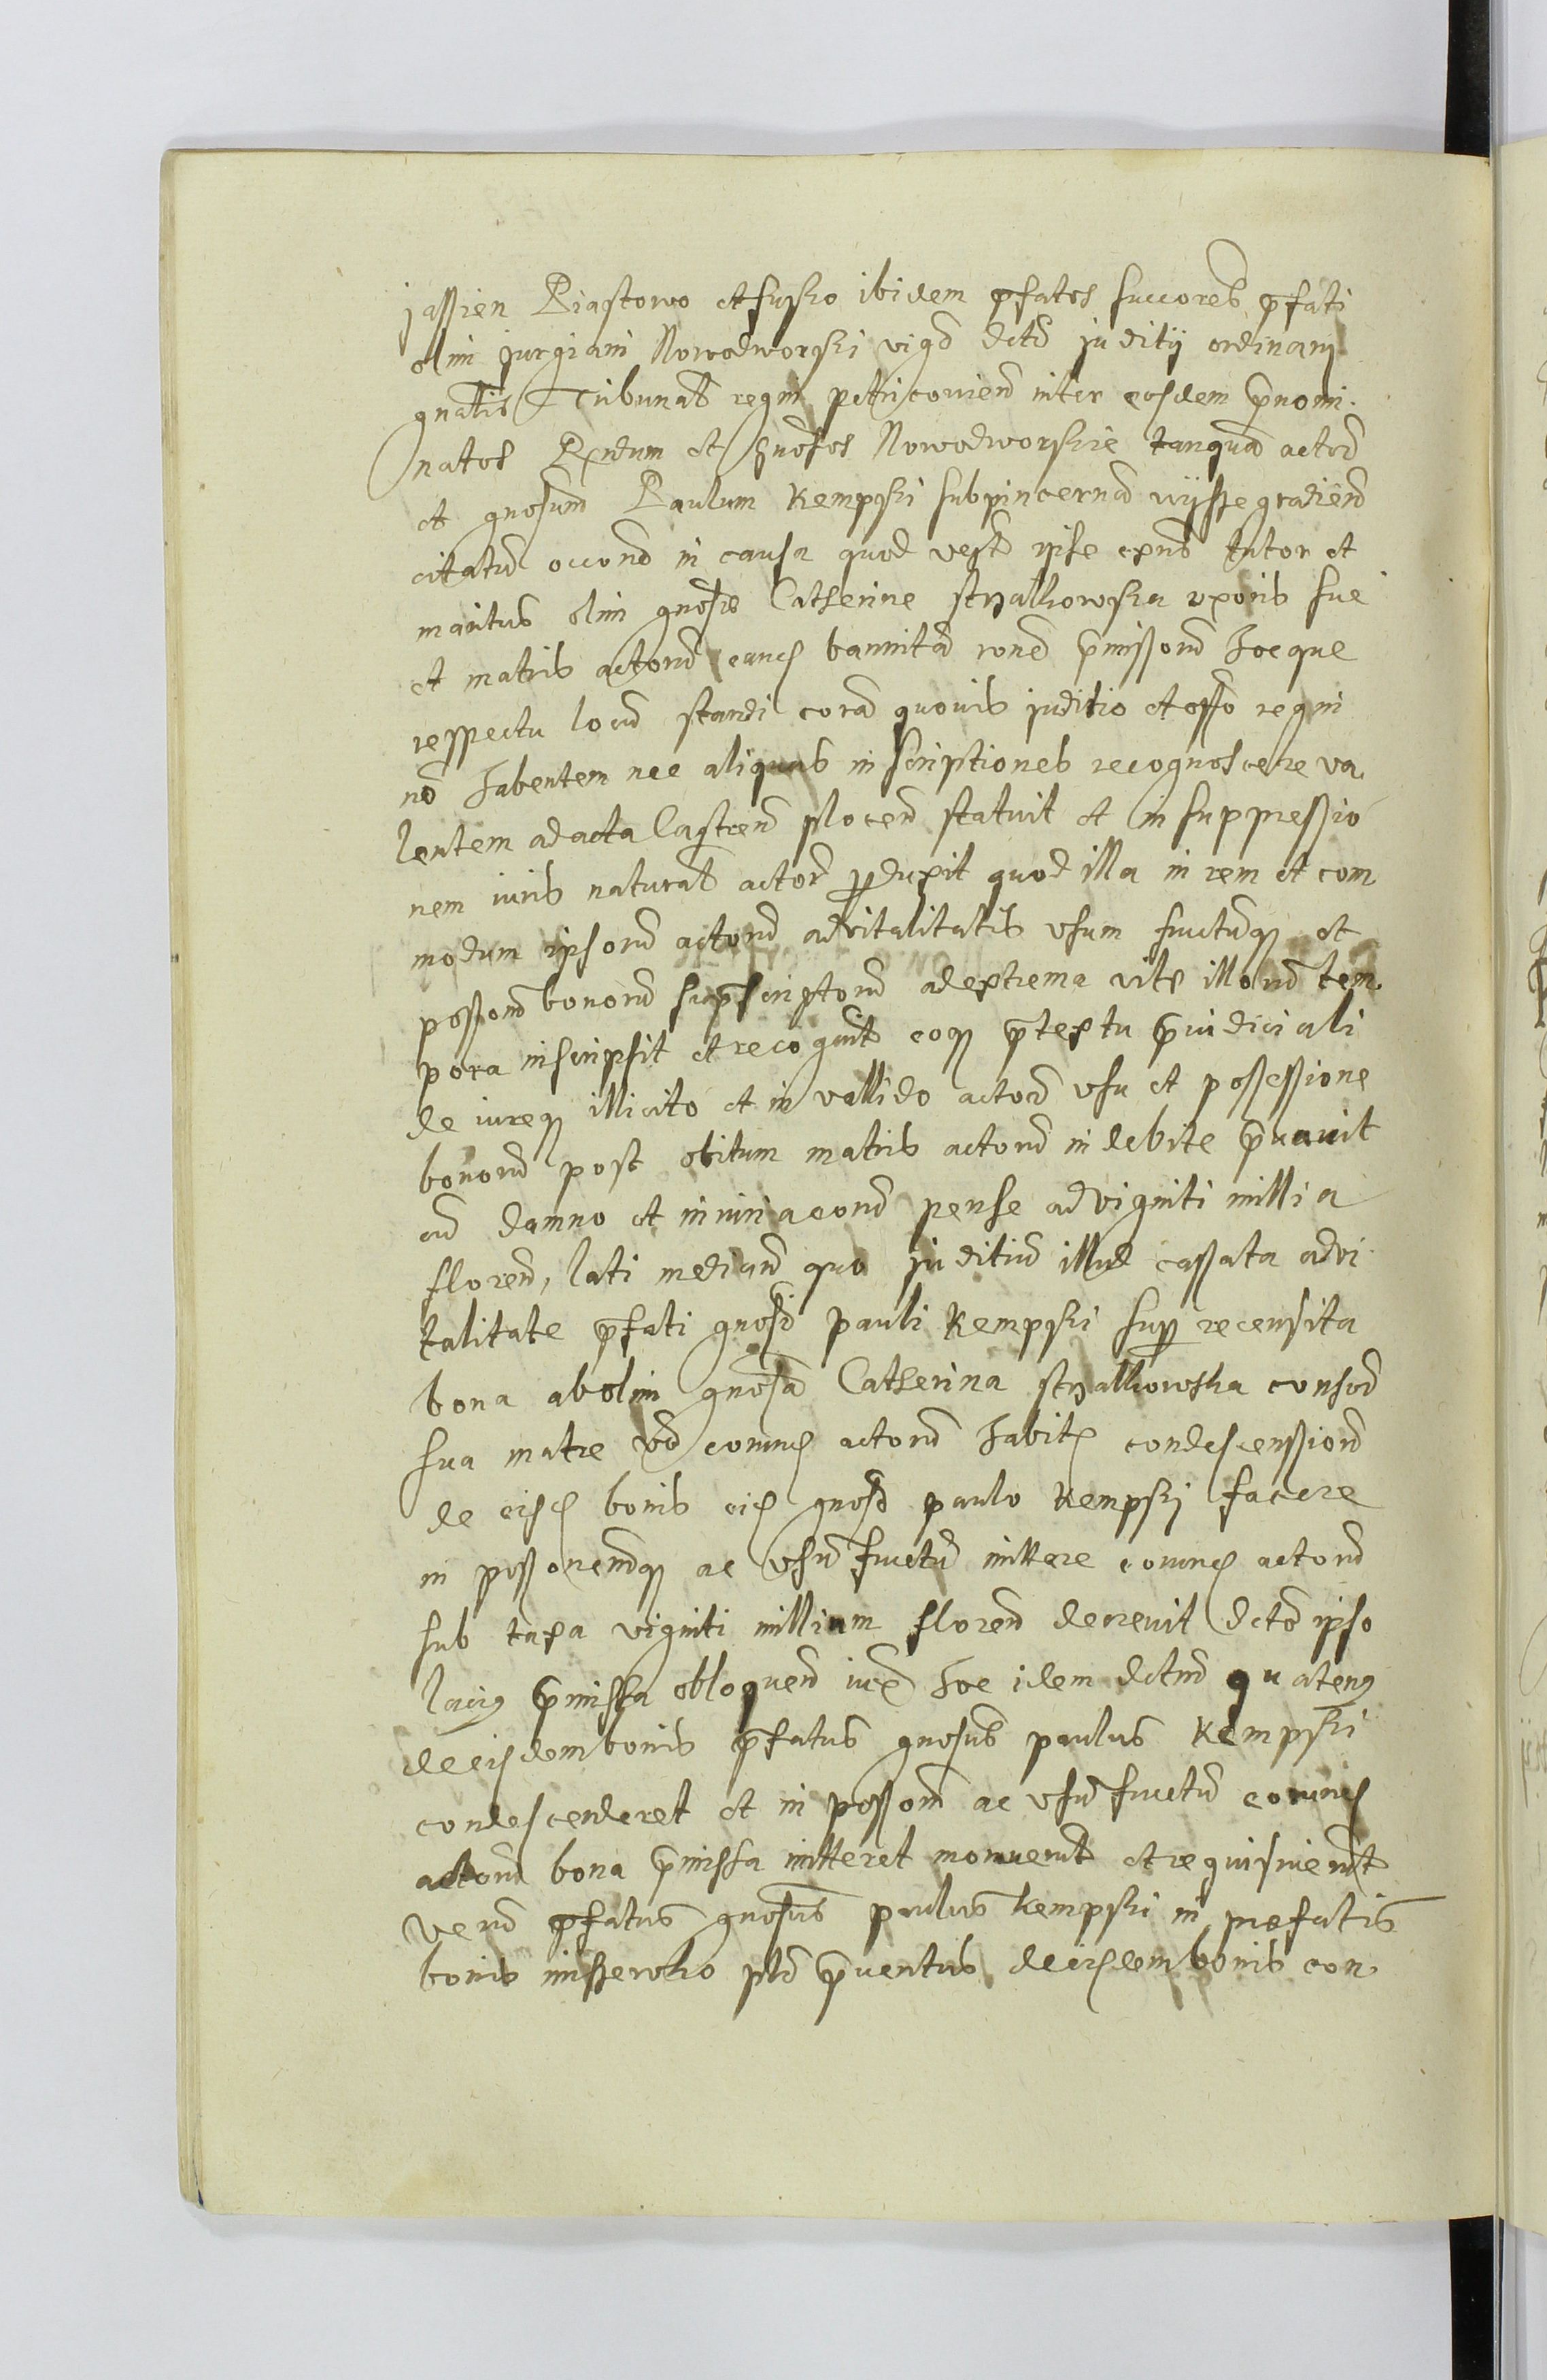 jassien Piastowo et susko ibidem pfatos succores pfati
olim jurgiani Nowodworski vigo dcto juditij ordinarij
gnalis Tribunals regni petricovien inter eosdem pnomi
natos Rndum et gnosos Nowodworskie tanqua actor
et gnosum Paulum Kempski subpincerna wyssegradien
citatu occone in causa quod vest ipse exns tutor et
maritus olim gnose Catherine strzalkowska uxoris sue
et matris actoru eancz bannita rone pmissoru hocque
respectu locu standi cora quovis juditio et offo regni
no habentem nec aliquas inscriptiones recognoscere va
lentem ad acta Castren plocen statuit et in suppressio
nem iuris natural actor produxit quod illa in rem et com
modum ipsoru actoru advitalitatis usum fructuq et
posson bonoru suprascriptoru ad extrema vite illoru tem
pora inscripsit et recognit eoq ptextu piudiciali
de iureq illicito et invallido actor usu et possessione
bonoru post obitum matris actoru indebite privavit
cu damno et iniuriacone pense ad viginti millia
floren, lati median quo juditiu illud cassata advi
talitate pfati gnosi pauli Kempski supra recensita
bona ab olim gnosa Catherina strzalkowska consor
sua matre vo eorundem actoru habita condescension
de eisdem bonis eidem gnoso paulo Kempski facere
in possonemq ac usu fructu mittere eorundem actoru
sub taxa viginti millium floren decrevit dcto ipso
lacius pmissa obloquen iure hoc idem dctum quatenus
de eisdem bonis pfatus gnosus paulus Kempski
condescenderet et in posson ac usu fructu eorundem
actoru bona pmissa mitteret monuerunt et requisiuerunt
Veru pfatus gnosus paulus Kempski in prefatis
bonis misserolio pto pventus de eisdem bonis con